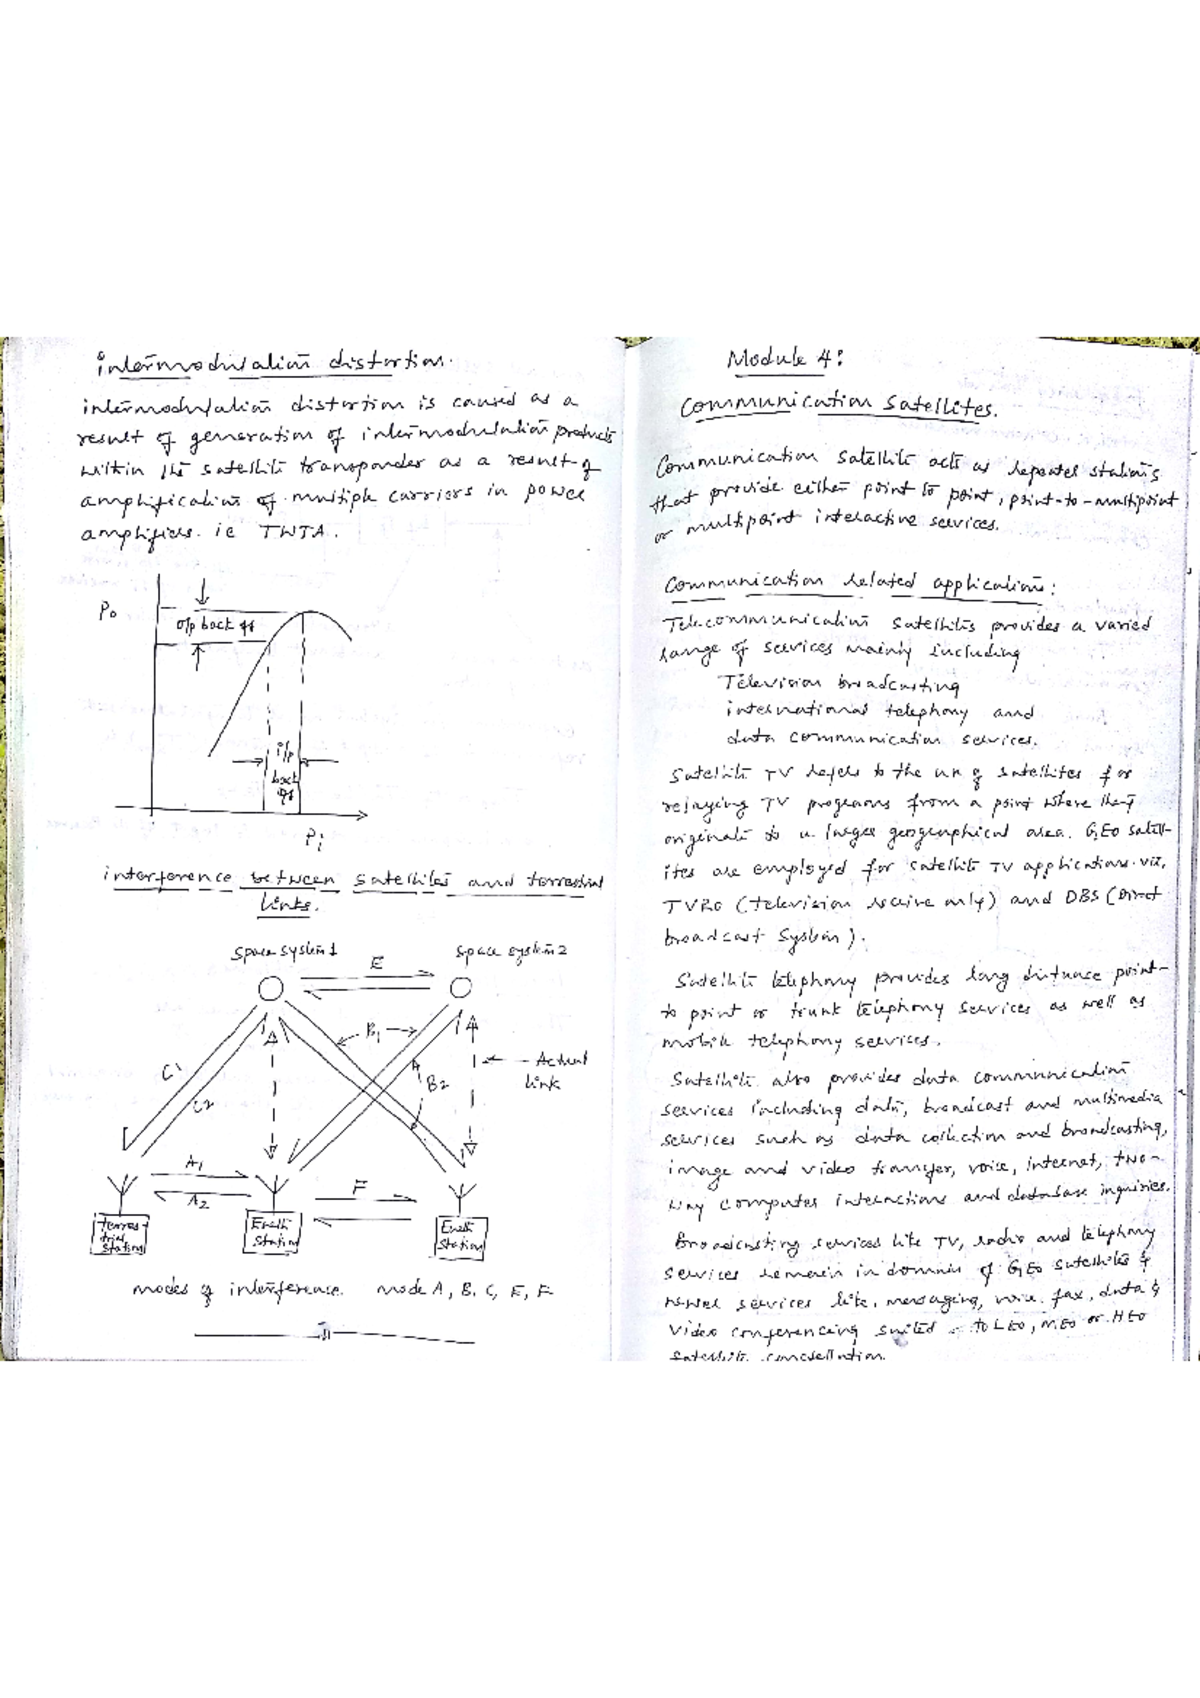 intermodulation distortion.
intermodulation distortion is caused as a
result of generation of intermodulation products
within the satellite transponder as a result of
amplification of multiple carriers in power
amplifiers. ie TWTA.
Po
o/p back off
i/p
back
off
Pi
interference between satellites and terrestrial
links.
Space system 1
Space system 2
E
B1
Actual
link
B2
C1
C2
A1
A2
F
Terres-
trial
station
Earth
station
Earth
station
modes of interference. mode A, B, C, E, F
Module 4:
Communication Satellites.
Communication satellite acts as repeater stations
that provide either point to point, point-to-multipoint
or multipoint interactive services.
Communication related applications:
Telecommunication satellites provides a varied
range of services mainly including
Television broadcasting
international telephony and
data communication services.
Satellite TV refers to the use of satellites for
relaying TV programs from a point where they
originate to a larger geographical area. GEO satell-
ites are employed for satellite TV applications. viz.
TVRO (television receive only) and DBS (Direct
broadcast System).
Satellite telephony provides long distance point-
to point or trunk telephony services as well as
mobile telephony services.
Satellite also provides data communication
services including data, broadcast and multimedia
services such as data collection and broadcasting,
image and video transfer, voice, internet, two-
way computer interactions and database inquiries.
Broadcasting services like TV, radio and telephony
services remain in domain of GEO satellites &
newer services like, messaging, voice. fax, data &
video conferencing suited to LEO, MEO or HEO
satellite constellation.